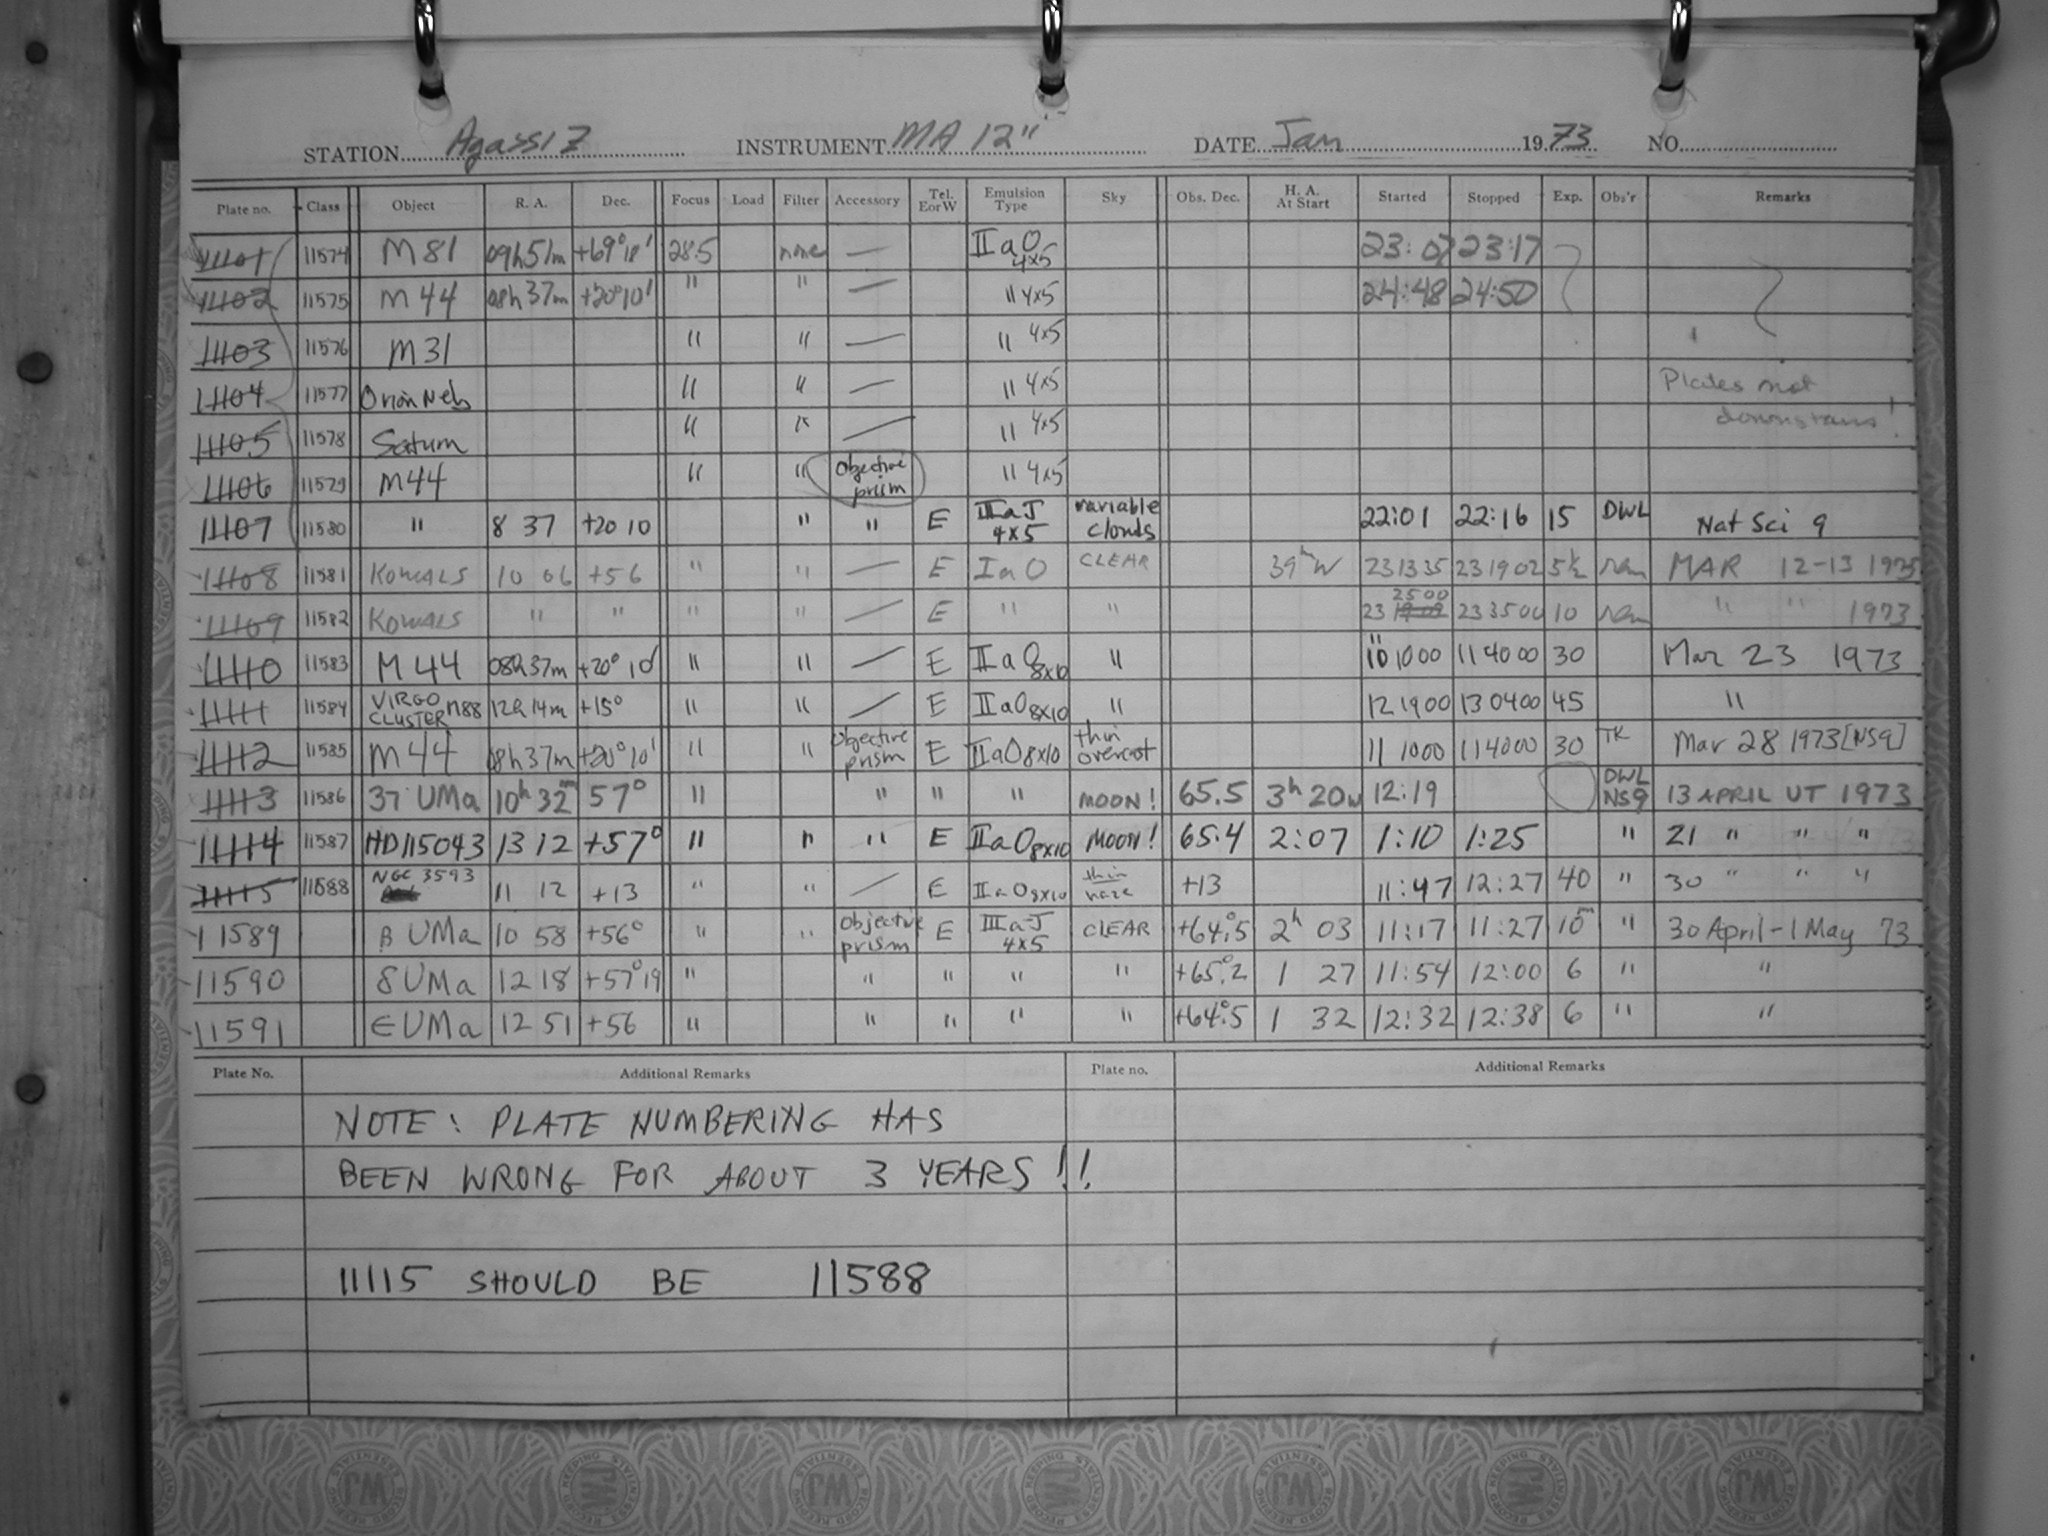 STATION Agassiz INSTRUMENT MA 12" DATE Jan 1973 NO.
Plate no. Class Object R. A. Dec. Focus Load Filter Accessory Tel. EorW Emulsion Type Sky Obs. Dec. H. A. At Start Started Stopped Exp. Obs'r Remarks
11101 11574 M 81 09h 51m +69° 18' 28.5 none — IIaO 4x5 23:07 23:17
11102 11575 M 44 08h 37m +20° 10' " " — " 4x5 24:48 24:50
11103 11576 M31 " " — " 4x5
11104 11577 Orion Neb " " — " 4x5 Plates not
11105 11578 Saturn " " — " 4x5 downstairs!
11106 11579 M44 " " Objective prism " 4x5
11107 11580 " 8 37 +20 10 " " E IIIaJ 4x5 variable clouds 22:01 22:16 15 DWL Nat Sci 9
11108 11581 KOWALS 10 06 +56 " " — E IaO CLEAR 39m W 23 13 35 23 19 02 5½ MAR 12-13 1975
11109 11582 KOWALS " " " " — E " " 23 25 00 23 35 00 10 " " 1973
11110 11583 M 44 08h 37m +20° 10' " " — E IIaO 8x10 " 11 10 00 11 40 00 30 Mar 23 1973
11111 11584 VIRGO CLUSTER M88 12h 14m +15° " " — E IIaO 8x10 " 12 19 00 13 04 00 45 "
11112 11585 M 44 08h 37m +20° 10' " " Objective prism E IIaO 8x10 thin overcast 11 10 00 11 40 00 30 TK Mar 28 1973 [NS9]
11113 11586 37 UMa 10h 32m 57° " " " " MOON! 65.5 3h 20w 12:19 DWL NS9 13 APRIL UT 1973
11114 11587 HD115043 13 12 +57° " " " E IIaO 8x10 MOON! 65.4 2:07 1:10 1:25 " 21 " " "
11115 11588 NGC 3593 11 12 +13 " " — E IIaO 8x10 thin haze +13 11:47 12:27 40 " 30 " " "
11589 β UMa 10 58 +56° " " Objective prism E IIIaJ 4x5 CLEAR +64°.5 2h 03 11:17 11:27 10m " 30 April - 1 May 73
11590 δ UMa 12 18 +57° 19 " " " " " +65°.2 1 27 11:54 12:00 6 " "
11591 ε UMa 12 51 +56 " " " " " +64°.5 1 32 12:32 12:38 6 " "
Plate No. Additional Remarks Plate no. Additional Remarks
NOTE: PLATE NUMBERING HAS
BEEN WRONG FOR ABOUT 3 YEARS!!
11115 SHOULD BE 11588